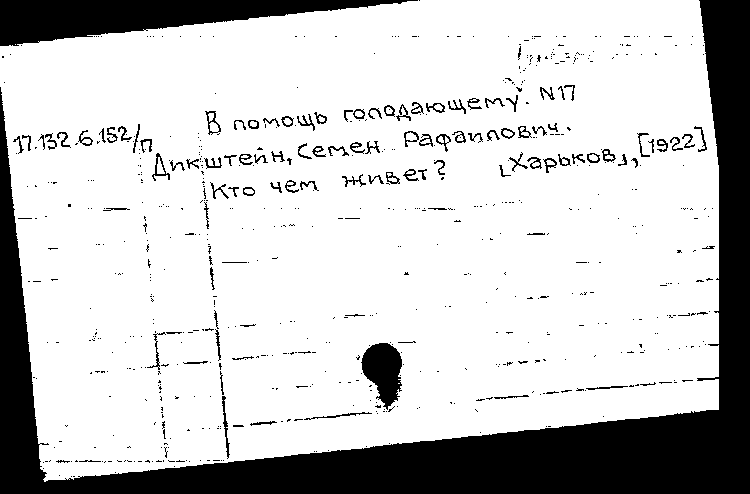 17.132.6.152/п
В помощь голодающему. N17
Дикштейн, Семен Рафаилович.
Кто чем живет? [Харьков], [1922]